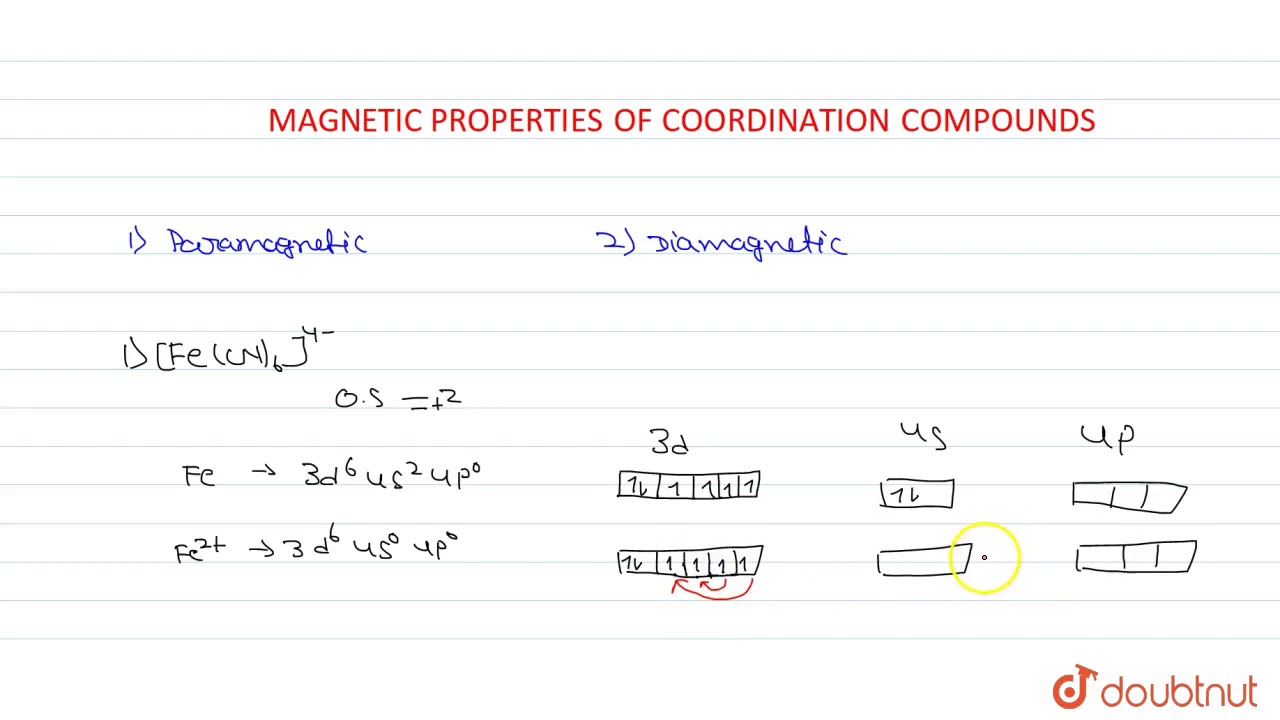 MAGNETIC PROPERTIES OF COORDINATION COMPOUNDS
1) Paramagnetic 2) Diamagnetic
1) [Fe(CN)₆]⁴⁻
O.S = +2
3d 4s 4p
Fe → 3d⁶ 4s² 4p⁰ 1⇂ 1 1 1 1 1⇂
Fe²⁺ → 3d⁶ 4s⁰ 4p⁰ 1⇂ 1 1 1 1
doubtnut